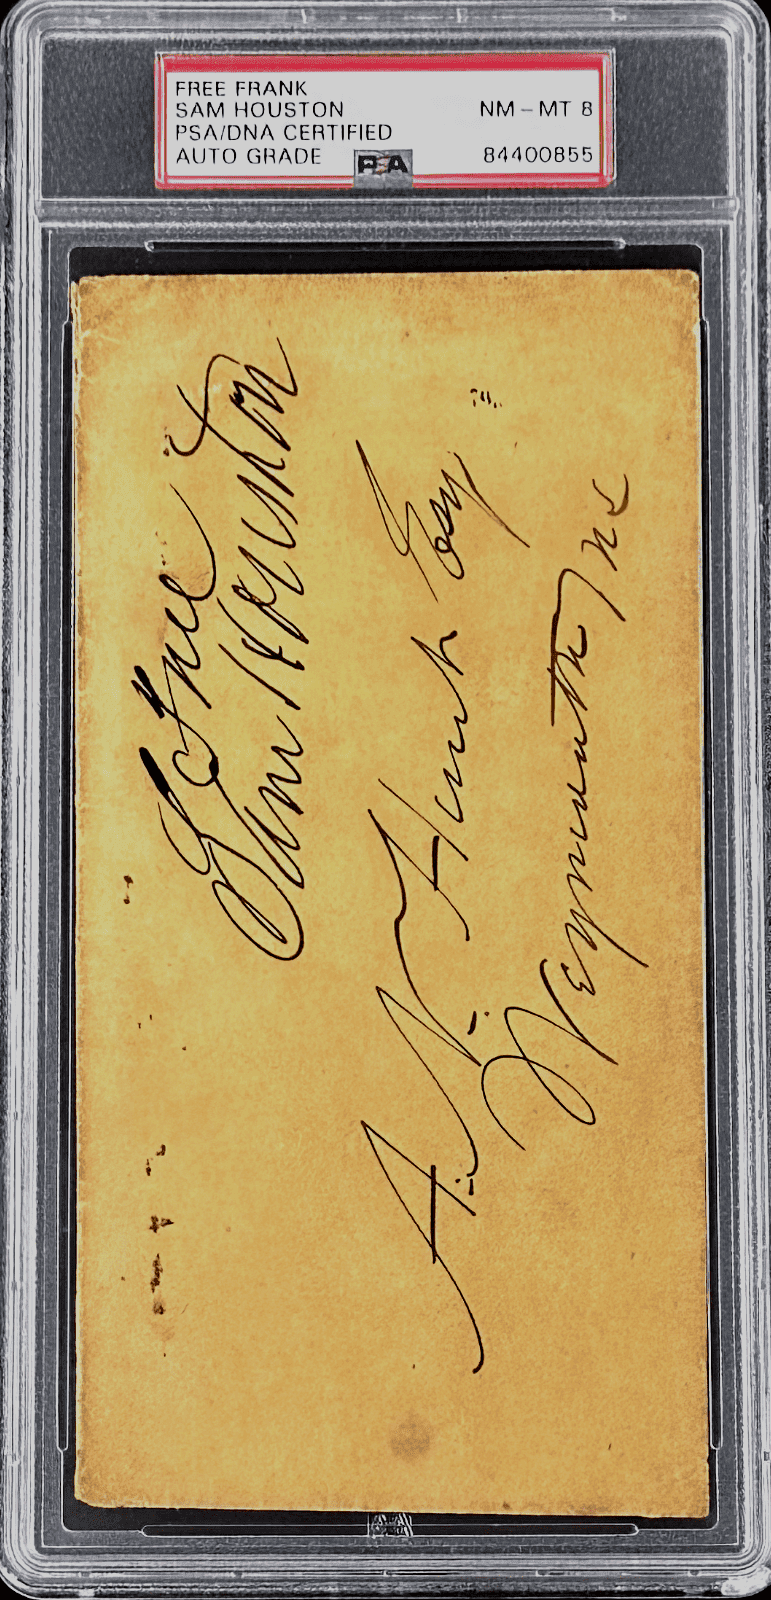 FREE FRANK
SAM HOUSTON NM-MT 8
PSA/DNA CERTIFIED
AUTO GRADE PSA 84400855
Free
Sam Houston
A. N. Hunt Esq
Weymouth